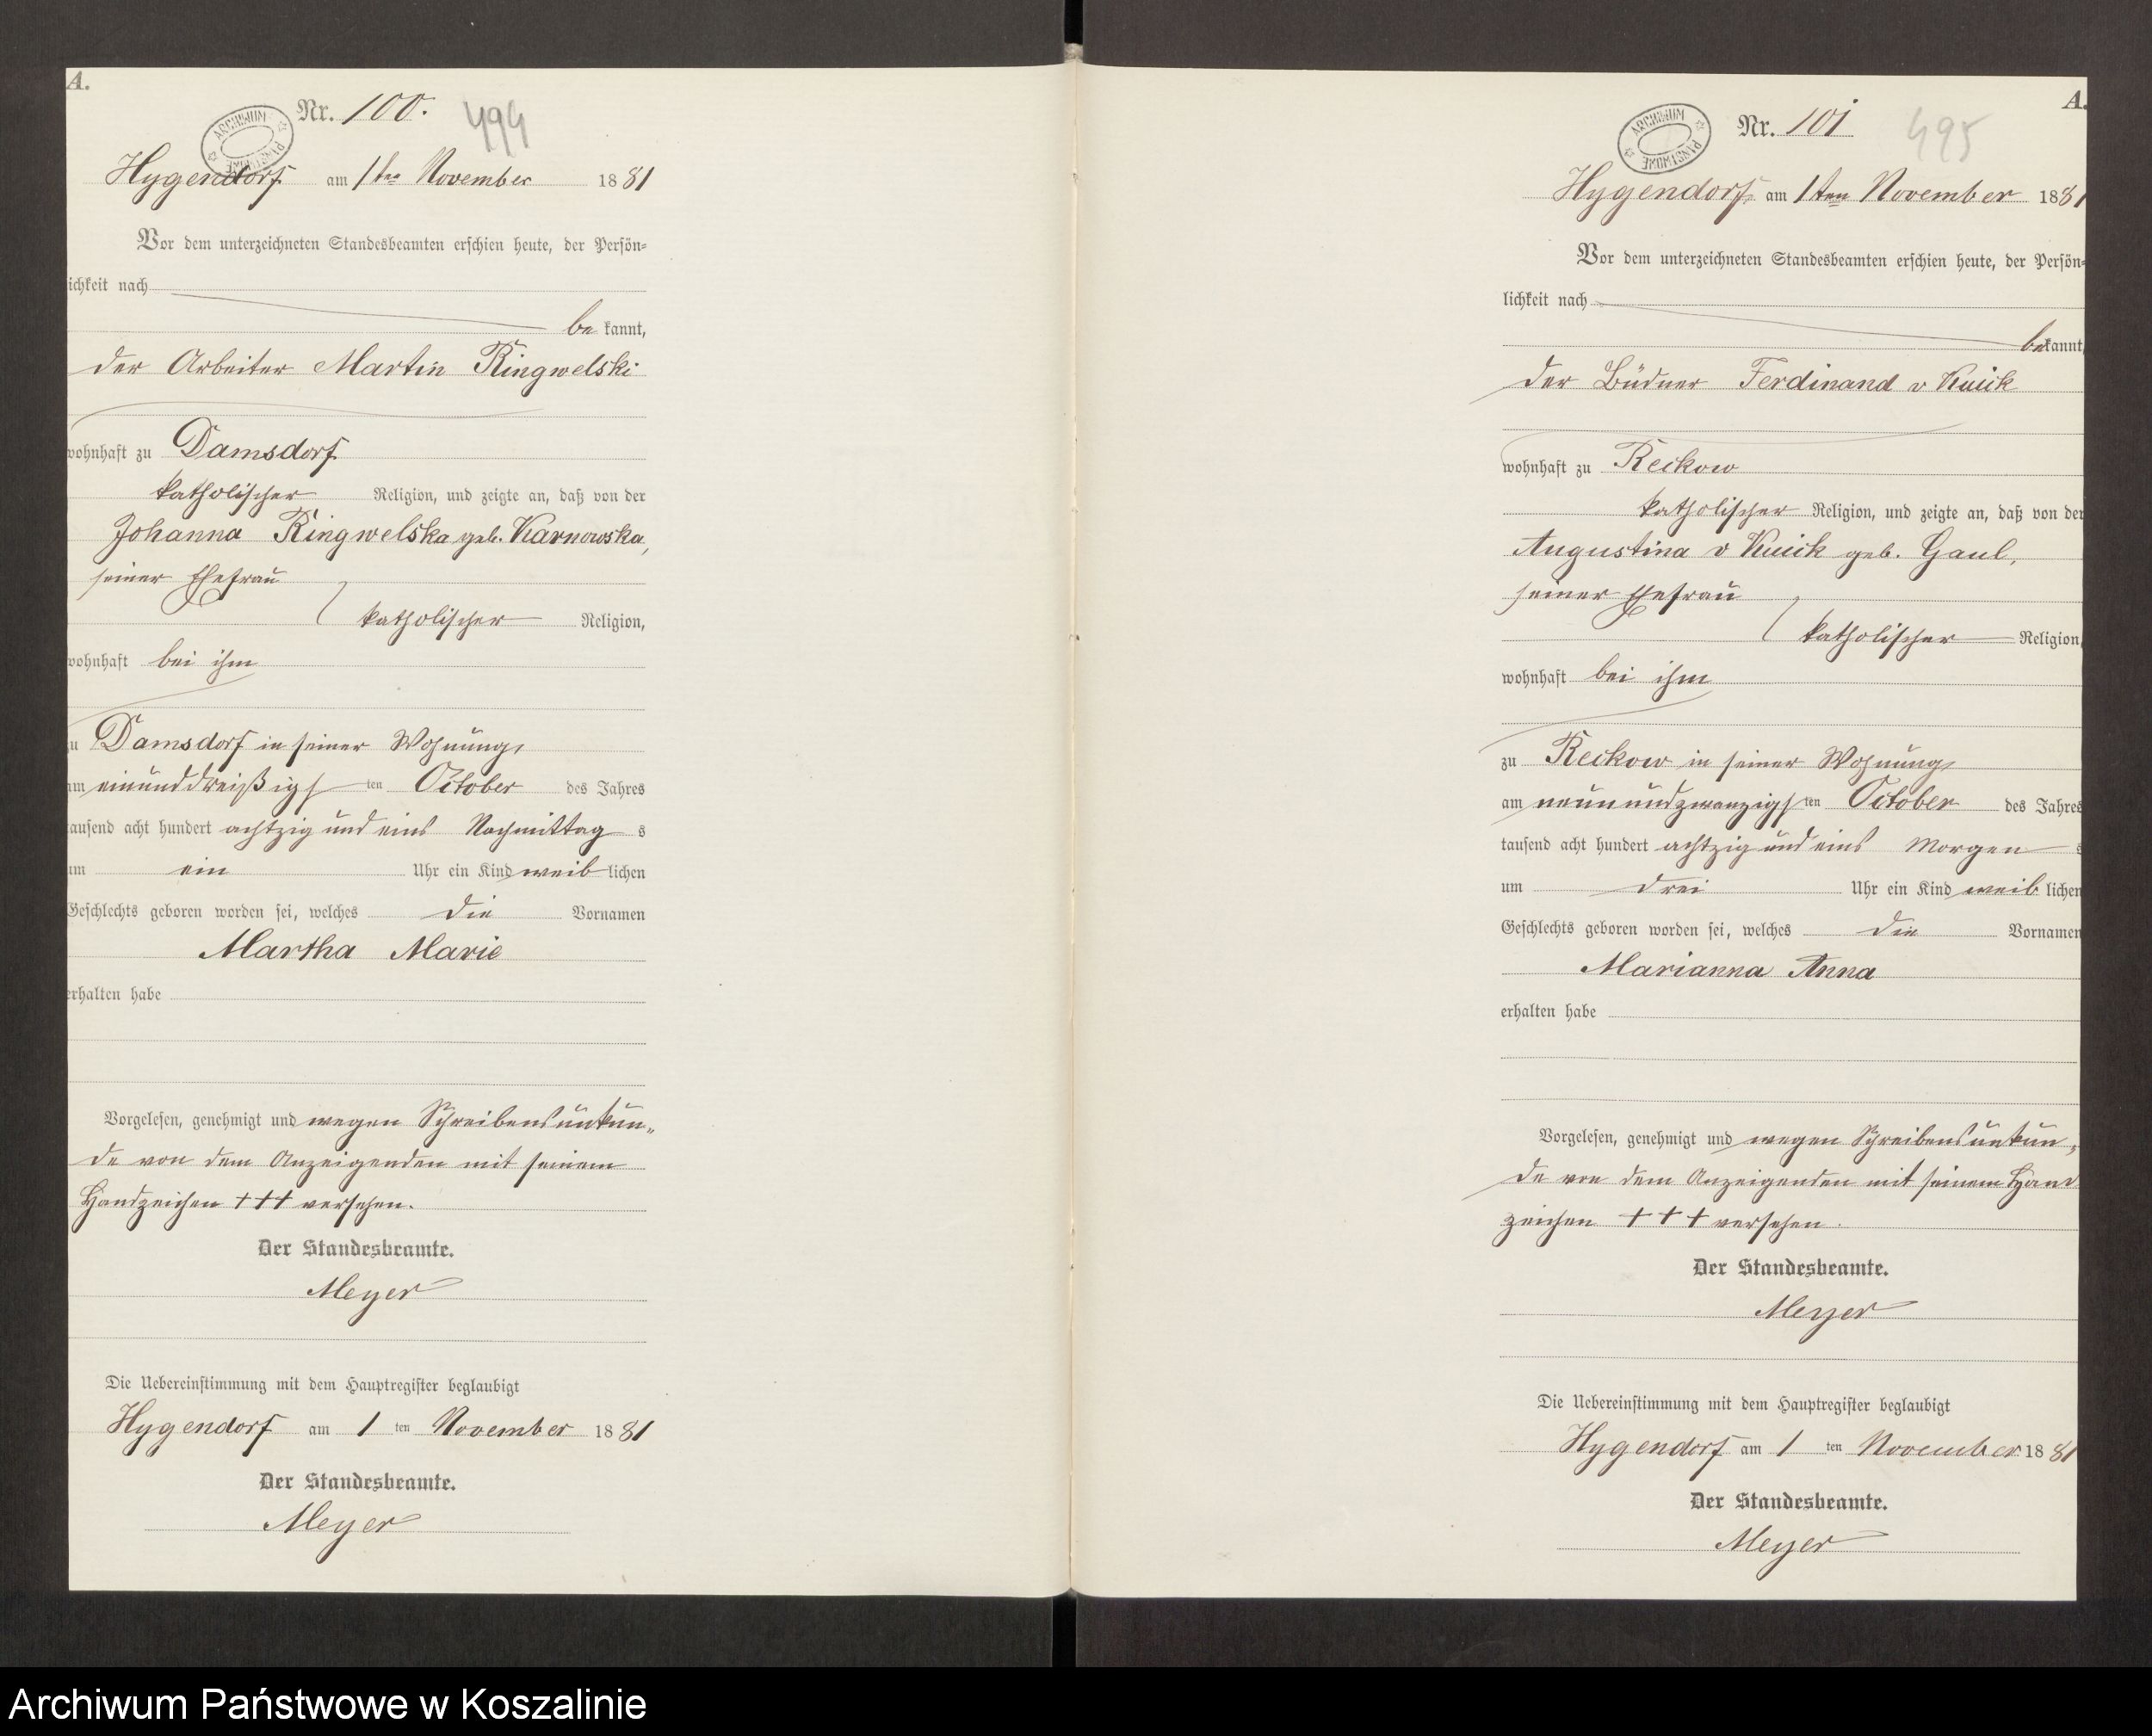 A.
Nr. 100.
494
ARCHIWUM PAŃSTWOWE
Hygendorf am 1ten November 1881
Vor dem unterzeichneten Standesbeamten erschien heute, der Persön-
lichkeit nach
bekannt,
der Arbeiter Martin Ringwelski
wohnhaft zu Damsdorf
katholischer Religion, und zeigte an, daß von der
Johanna Ringwelska geb. Karnowska,
seiner Ehefrau
katholischer Religion,
wohnhaft bei ihm
zu Damsdorf in seiner Wohnung,
am einunddreißigsten October des Jahres
tausend acht hundert achtzig und eins Nachmittags
um ein Uhr ein Kind weiblichen
Geschlechts geboren worden sei, welches die Vornamen
Martha Marie
erhalten habe
Vorgelesen, genehmigt und wegen Schreibensunkun-
de von dem Anzeigenden mit seinem
Handzeichen +++ versehen.
Der Standesbeamte.
Meyer
Die Uebereinstimmung mit dem Hauptregister beglaubigt
Hygendorf am 1ten November 1881
Der Standesbeamte.
Meyer
A.
Nr. 101
495
ARCHIWUM PAŃSTWOWE
Hygendorf am 1ten November 1881
Vor dem unterzeichneten Standesbeamten erschien heute, der Persön-
lichkeit nach
bekannt,
der Büdner Ferdinand v
wohnhaft zu Reckow
katholischer Religion, und zeigte an, daß von der
Augustina v geb. Gaul,
seiner Ehefrau
katholischer Religion,
wohnhaft bei ihm
zu Reckow in seiner Wohnung,
am neunundzwanzigsten October des Jahres
tausend acht hundert achtzig und eins Morgens
um drei Uhr ein Kind weiblichen
Geschlechts geboren worden sei, welches die Vornamen
Marianna Anna
erhalten habe
Vorgelesen, genehmigt und wegen Schreibensunkun-
de von dem Anzeigenden mit seinem Hand
zeichen +++ versehen.
Der Standesbeamte.
Meyer
Die Uebereinstimmung mit dem Hauptregister beglaubigt
Hygendorf am 1ten November 1881
Der Standesbeamte.
Meyer
Archiwum Państwowe w Koszalinie